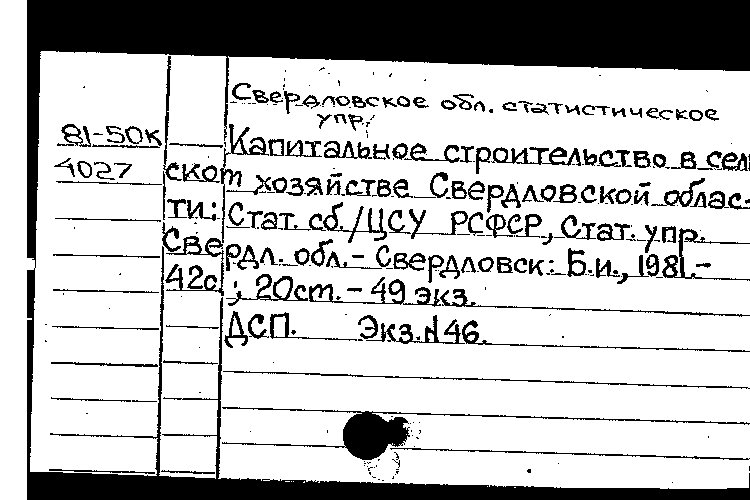 Свердловское обл. статистическое
упр.
81-50к
4027
Капитальное строительство в сель
ском хозяйстве Свердловской облас-
ти: Стат. сб./ЦСУ РСФСР, Стат. упр.
Свердл. обл.- Свердловск: Б.и., 1981.-
42с.; 20cm. - 49 экз.
ДСП. Экз.N46.